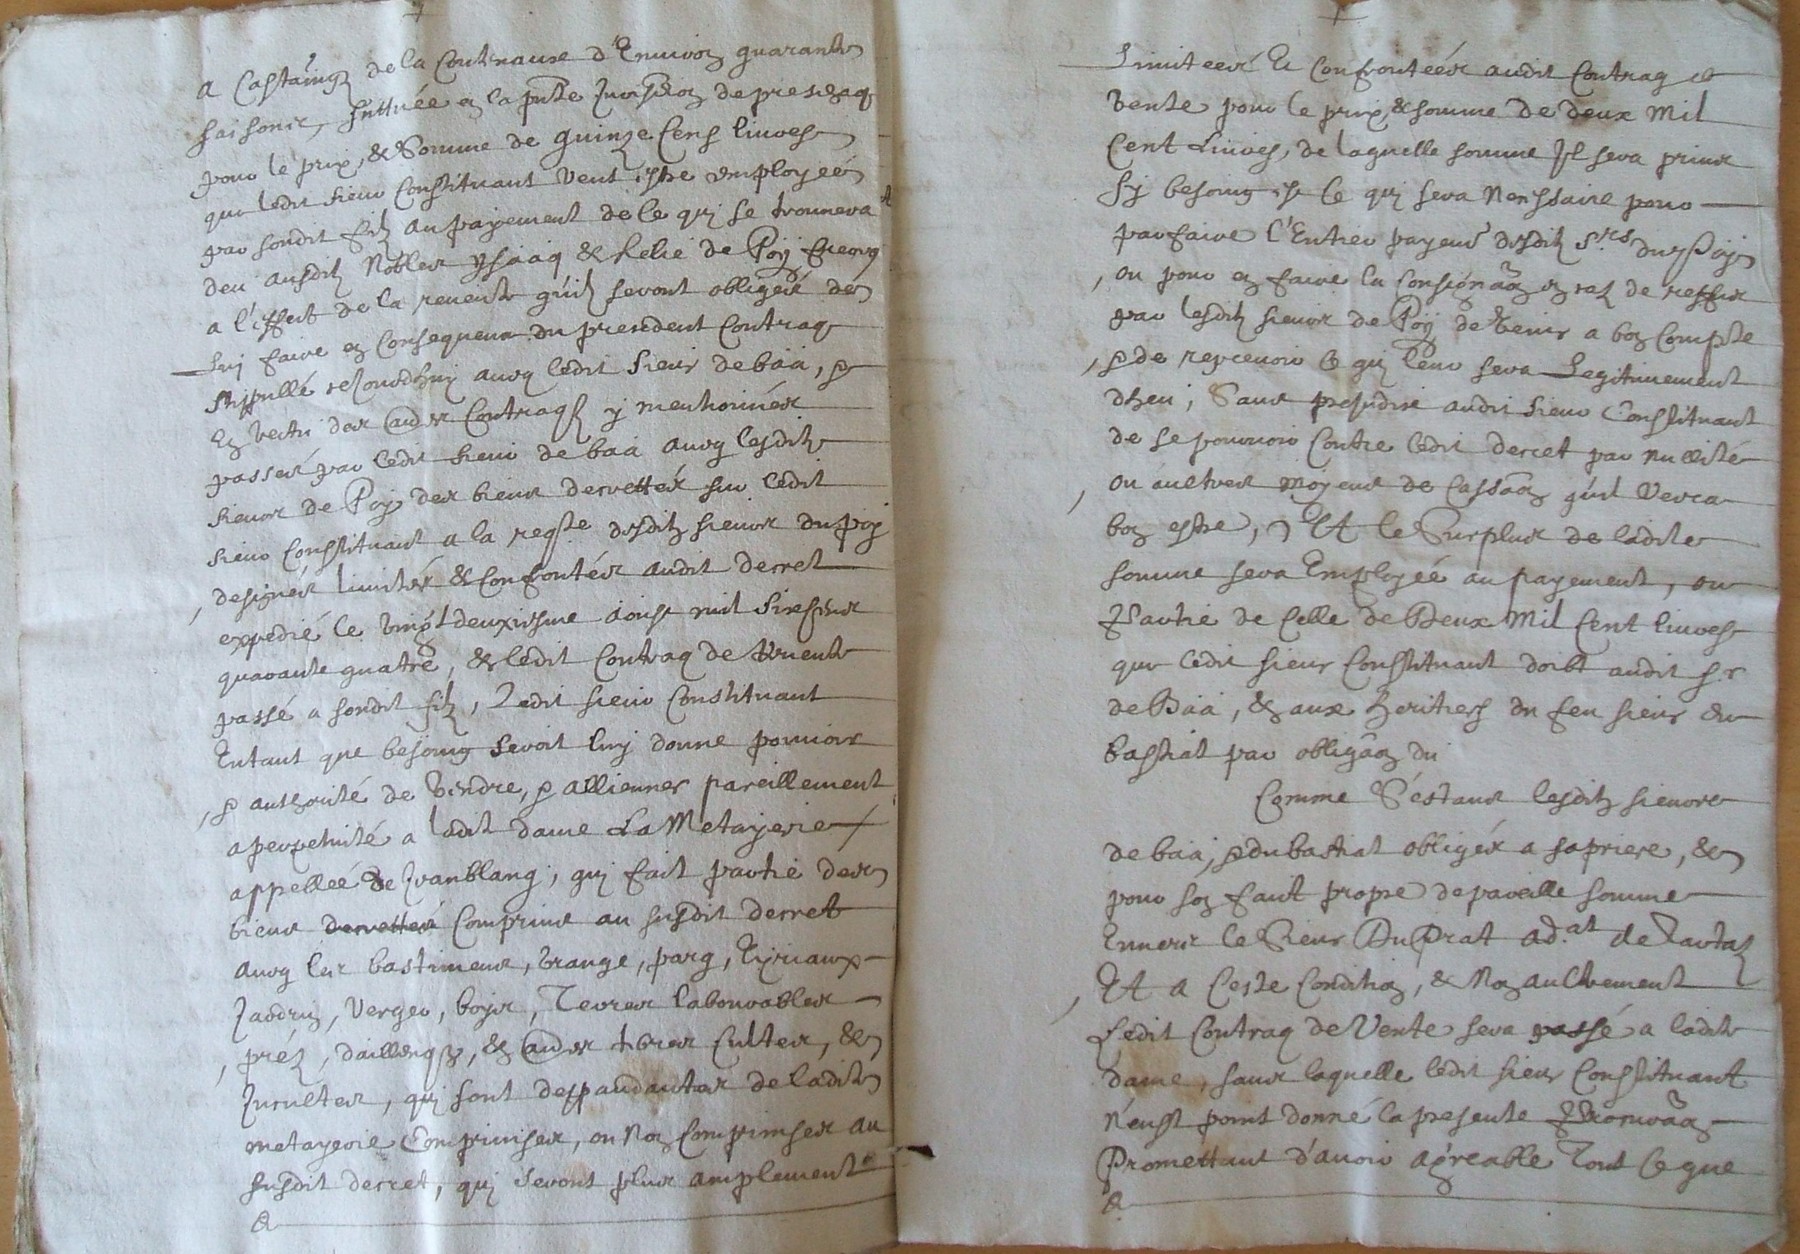 a Castaing de la Contenance d'Environ quarante
saisons, scittuée en la pnte Jurisdon de preschaq
pour le prix, & Somme de quinze Cens livres
que ledit sieur Constituant veut estre employée
par sondit filz au payement de ce qui se trouvera
deu ausditz Nobles ysaaq & helie de Poy freres
a l'effect de la revente qu'ilz seront obligés de
luy faire en Consequence du precedent Contraq
stippullé cejourdhuy avecq ledit sieur de baa, &
En vertu des autres Contraqs y mentionnés
passés par ledit sieur de baa avecq lesditz
sieurs de Poy des biens decrettés sur ledit
sieur Constituant a la reqte desditz sieurs du poy
designés limités & Confrontés audit decret
expedié le vingt deuxiesme aoust mil sixcens
quarante quatre, & ledit Contraq de Revente
passé a sondit filz, Ledit sieur Constituant
Entant que besoing seroit luy donne pouvoir
& authorité de vendre, & allienner pareillement
a perpetuité a ladite dame La Metayerie
appellée de Jvanblanq, qui fait partie des
biens Comprins au susdit decret
avecq les bastimens, Grange, parq,
Jardrin, verger, boys, Terres labourables
préz, & autres terres Cultes, &
Jncultes, qui sont despandantes de ladite
metayerie Comprinses, ou Non Comprinses au
susdit decret, qui seront plus amplement
Limitees & Confrontées audit Contraq de
vente pour le prix, & somme de deux Mil
Cent Livres, de laquelle somme Jl sera prins
sy besoing est ce qui sera Necessaire pour
parfaire l'Entier payemt desditz Srs du Poy
ou pour en faire la Consignaon en cas de reffus
par lesditz sieurs de Poy de venir a bon Compte
& de recevoir ce qui leur sera Legitimement
dheu, Sans prejudice audit sieur Constituant
de se pourvoir Contre ledit decret par nullité
ou aultres moyens de Cassaon qu'il verra
bon estre, Et le Surplus de ladite
somme sera Employée au payement, ou
Partie de Celle de Deux Mil Cent livres
que ledit sieur Constituant doibt audit sr
de Baa, & aux heritiers du feu sieur du
bastiat par obligaon du
Comme S'estant lesditz sieurs
de baa, & du bastiat obligés a sa priere, &
pour son faict propre de pareille somme
Envers le Sieur Du Prat ad.at de Tartaz
Et a Ceste Condition, & Non aultrement
Ledit Contraq de Vente sera passé a ladite
dame, sans laquelle ledit sieur Constituant
n'eust point donné la presente Procuraon
Promettant d'avoir agreable Tout Ce que